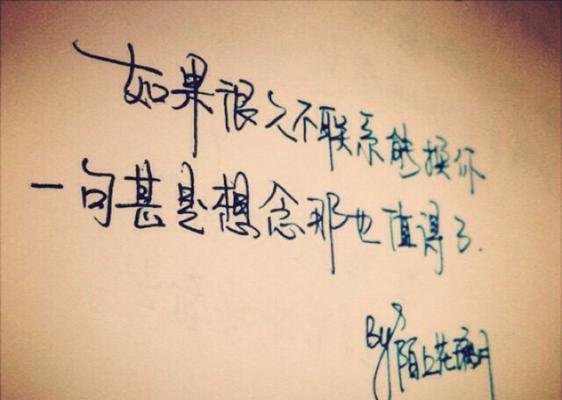 如果很久不联系能换你
一句甚是想念那也值得了.
By 陌上花